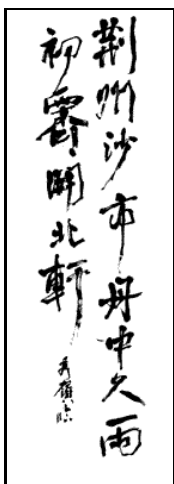 荆州沙市舟中久雨
初霽開北軒